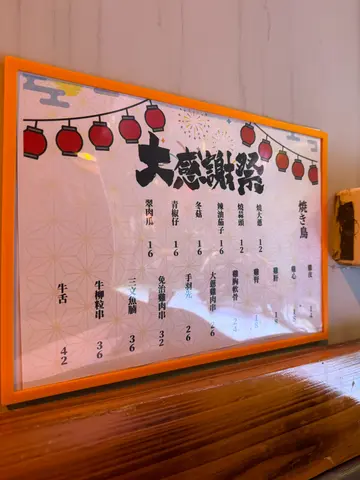 大感謝祭
焼き鳥
燒大蔥 12
燒蒜頭 12
辣油茄子 16
冬菇 16
青椒仔 16
翠肉瓜 16
雞皮
雞心
雞肝
雞腎
雞胸軟骨
大蔥雞肉串 26
手羽先 26
免治雞肉串 32
三文魚腩 36
牛柳粒串 36
牛舌 42